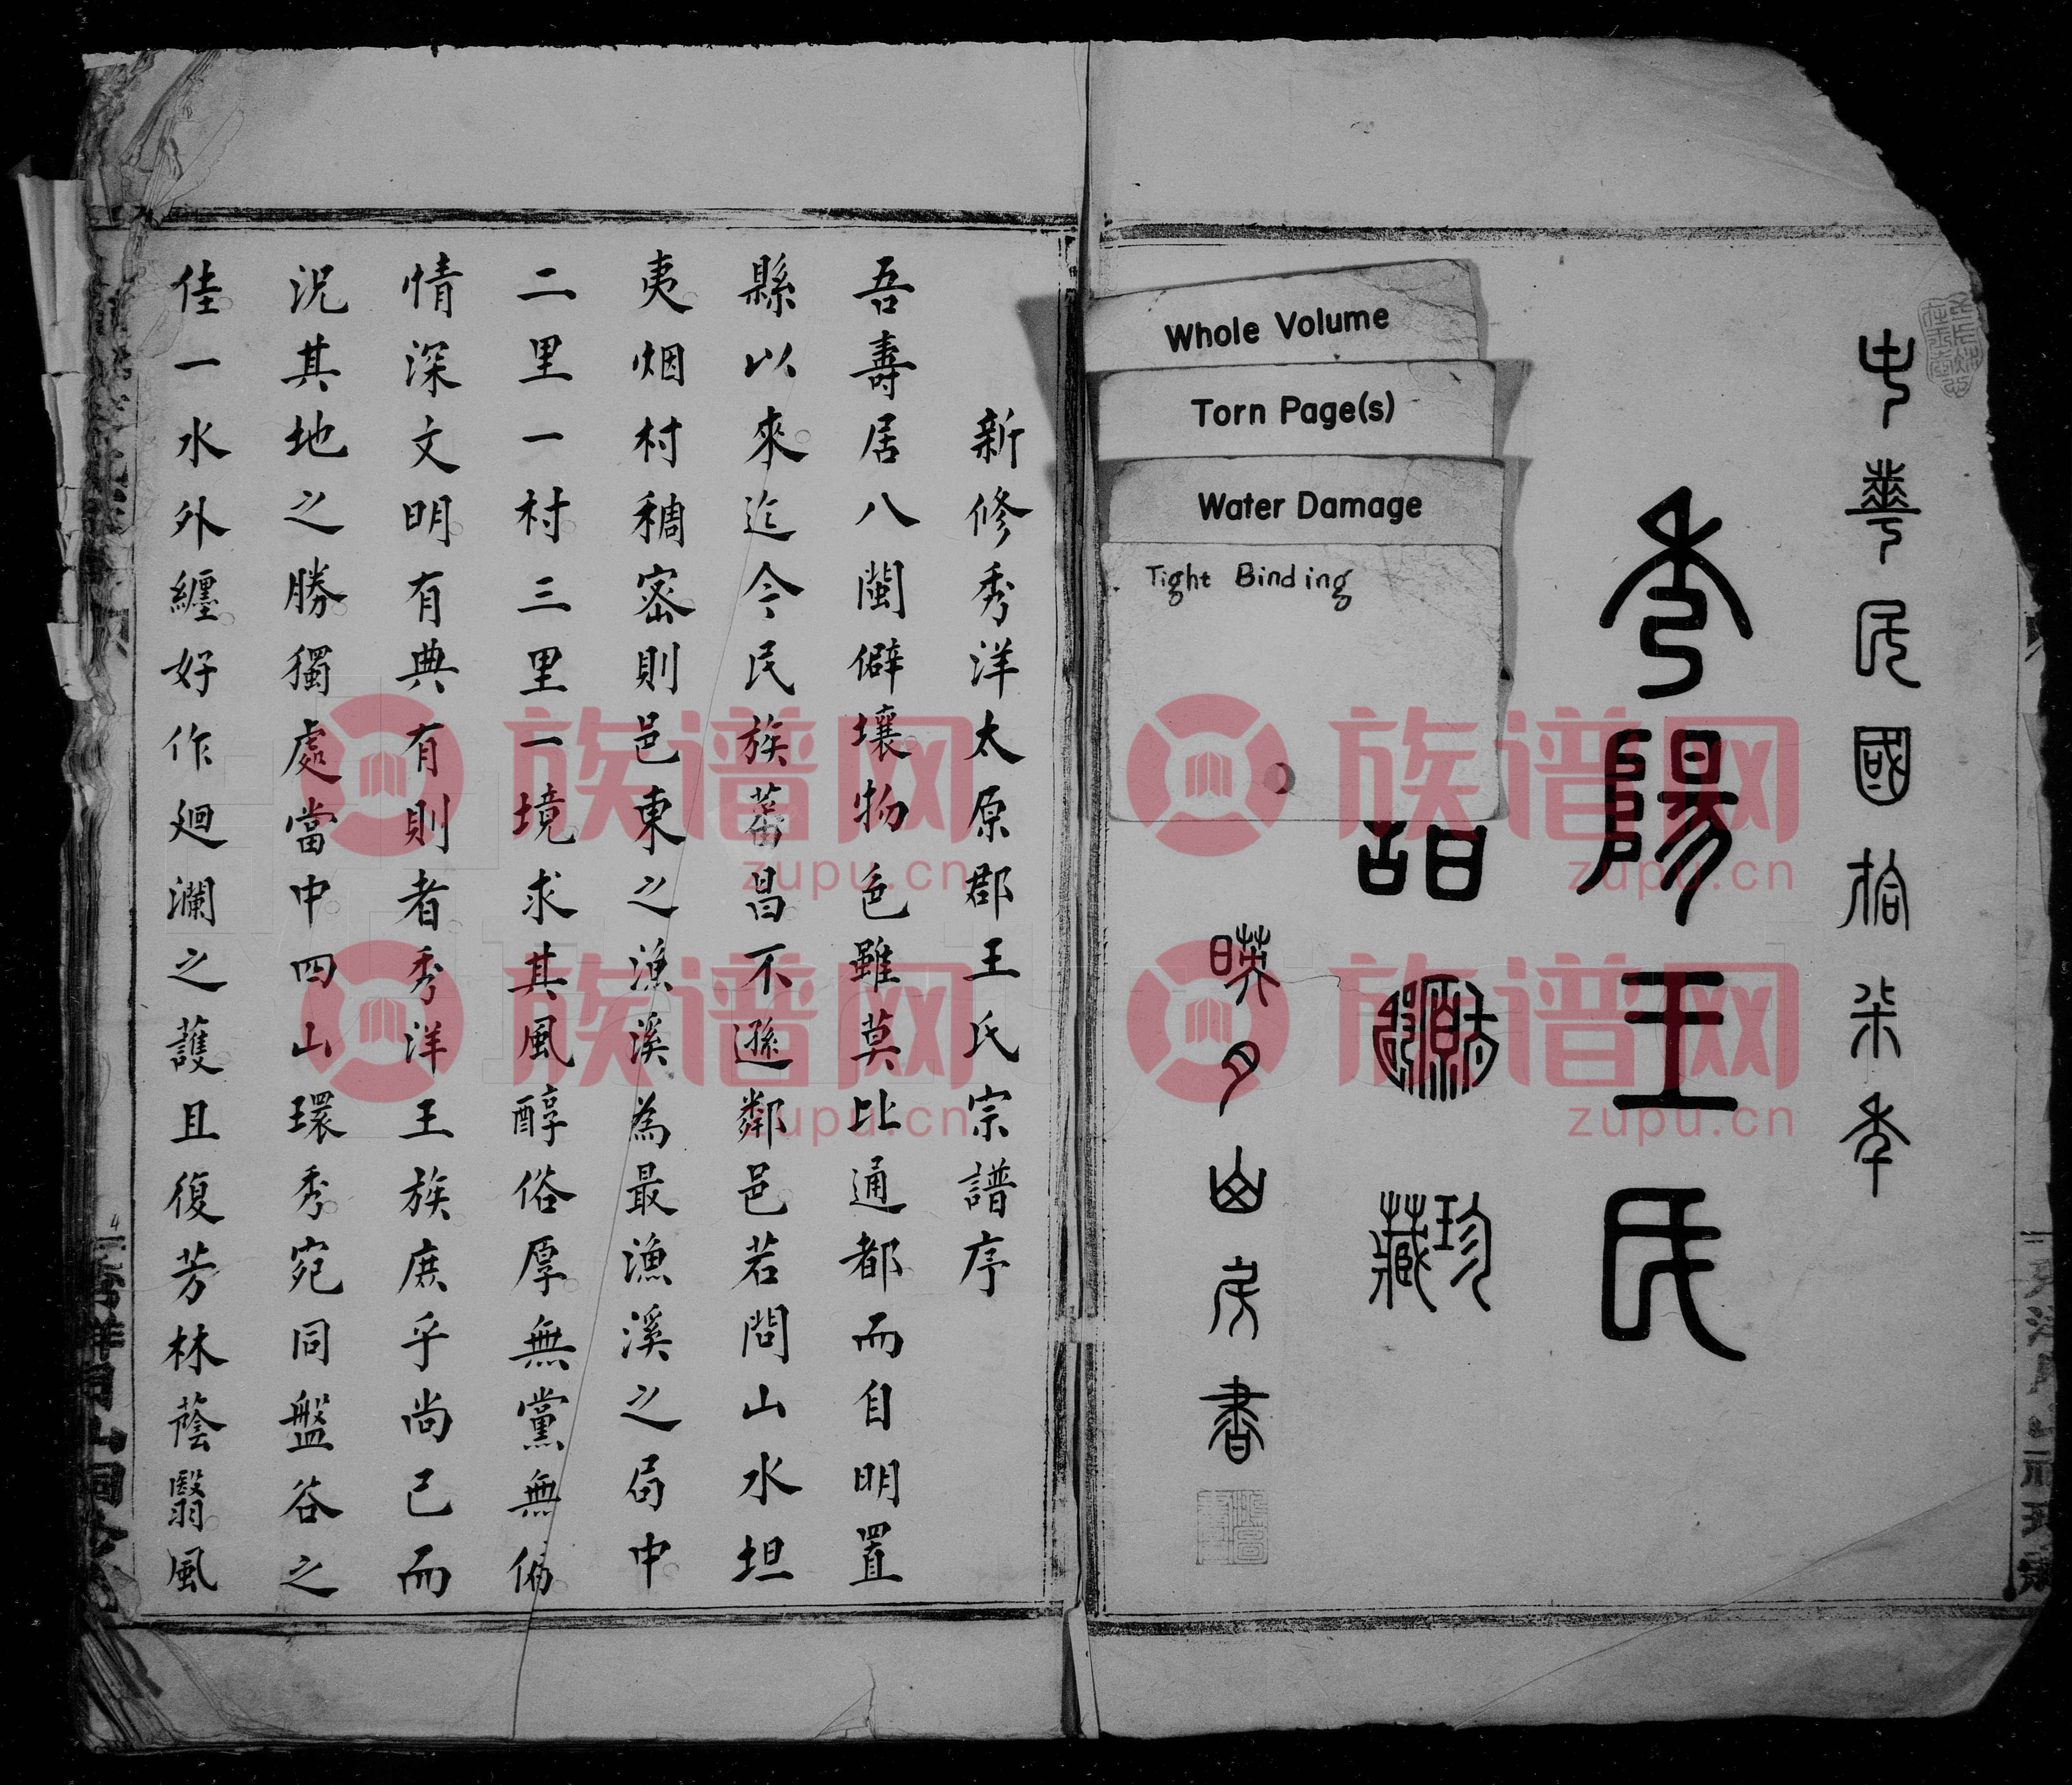 中華民國拾柒年
秀陽王氏
譜
珍藏
映月山房書
Whole Volume
Torn Page(s)
Water Damage
Tight Binding
新修秀洋太原郡王氏宗譜序
吾壽居八閩僻壤物色雖莫比通都而自明置
縣以來迄今民族蕃昌不遜鄰邑若問山水坦
夷烟村稠密則邑東之漁溪為最漁溪之局中
二里一村三里一境求其風醇俗厚無黨無偏
情深文明有典有則者秀洋王族庶乎尚已而
況其地之勝獨處當中四山環秀宛同盤谷之
佳一水外纏好作廻瀾之護且復芳林蔭翳風
族谱网
zupu.cn
族谱网
zupu.cn
族谱网
zupu.cn
族谱网
zupu.cn